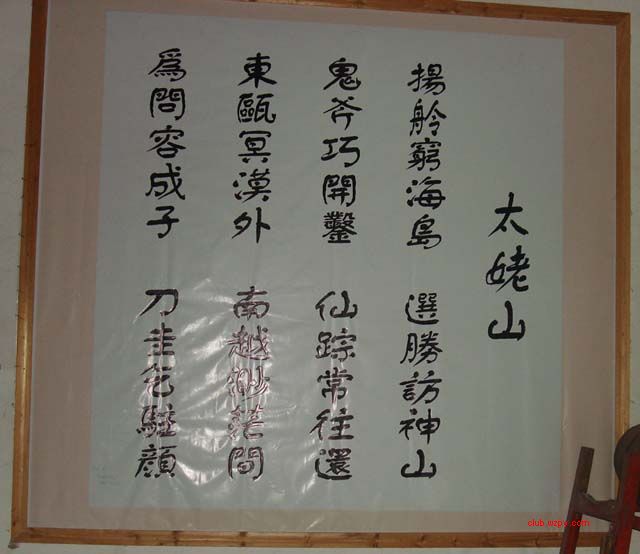 太姥山
揚舲窮海島 選勝訪神山
鬼斧巧開鑿 仙踪常往還
東甌冥漠外 南越渺茫間
為問容成子 刀圭乞駐顏
club.wzpx.com